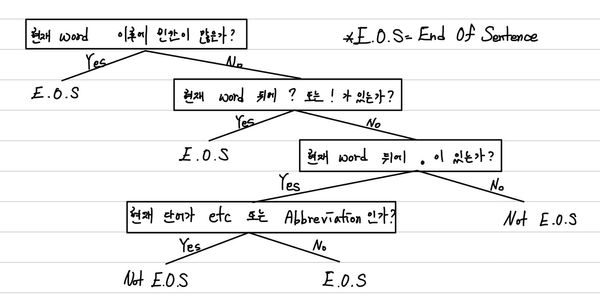 현재 word 이후에 빈칸이 많은가?
*E.O.S= End Of Sentence
Yes
No
E.O.S
현재 word 뒤에 ? 또는 ! 가 있는가?
Yes
No
E.O.S
현재 word 뒤에 . 이 있는가?
Yes
No
현재 단어가 etc 또는 Abbreviation 인가?
Not E.O.S
Yes
No
Not E.O.S
E.O.S